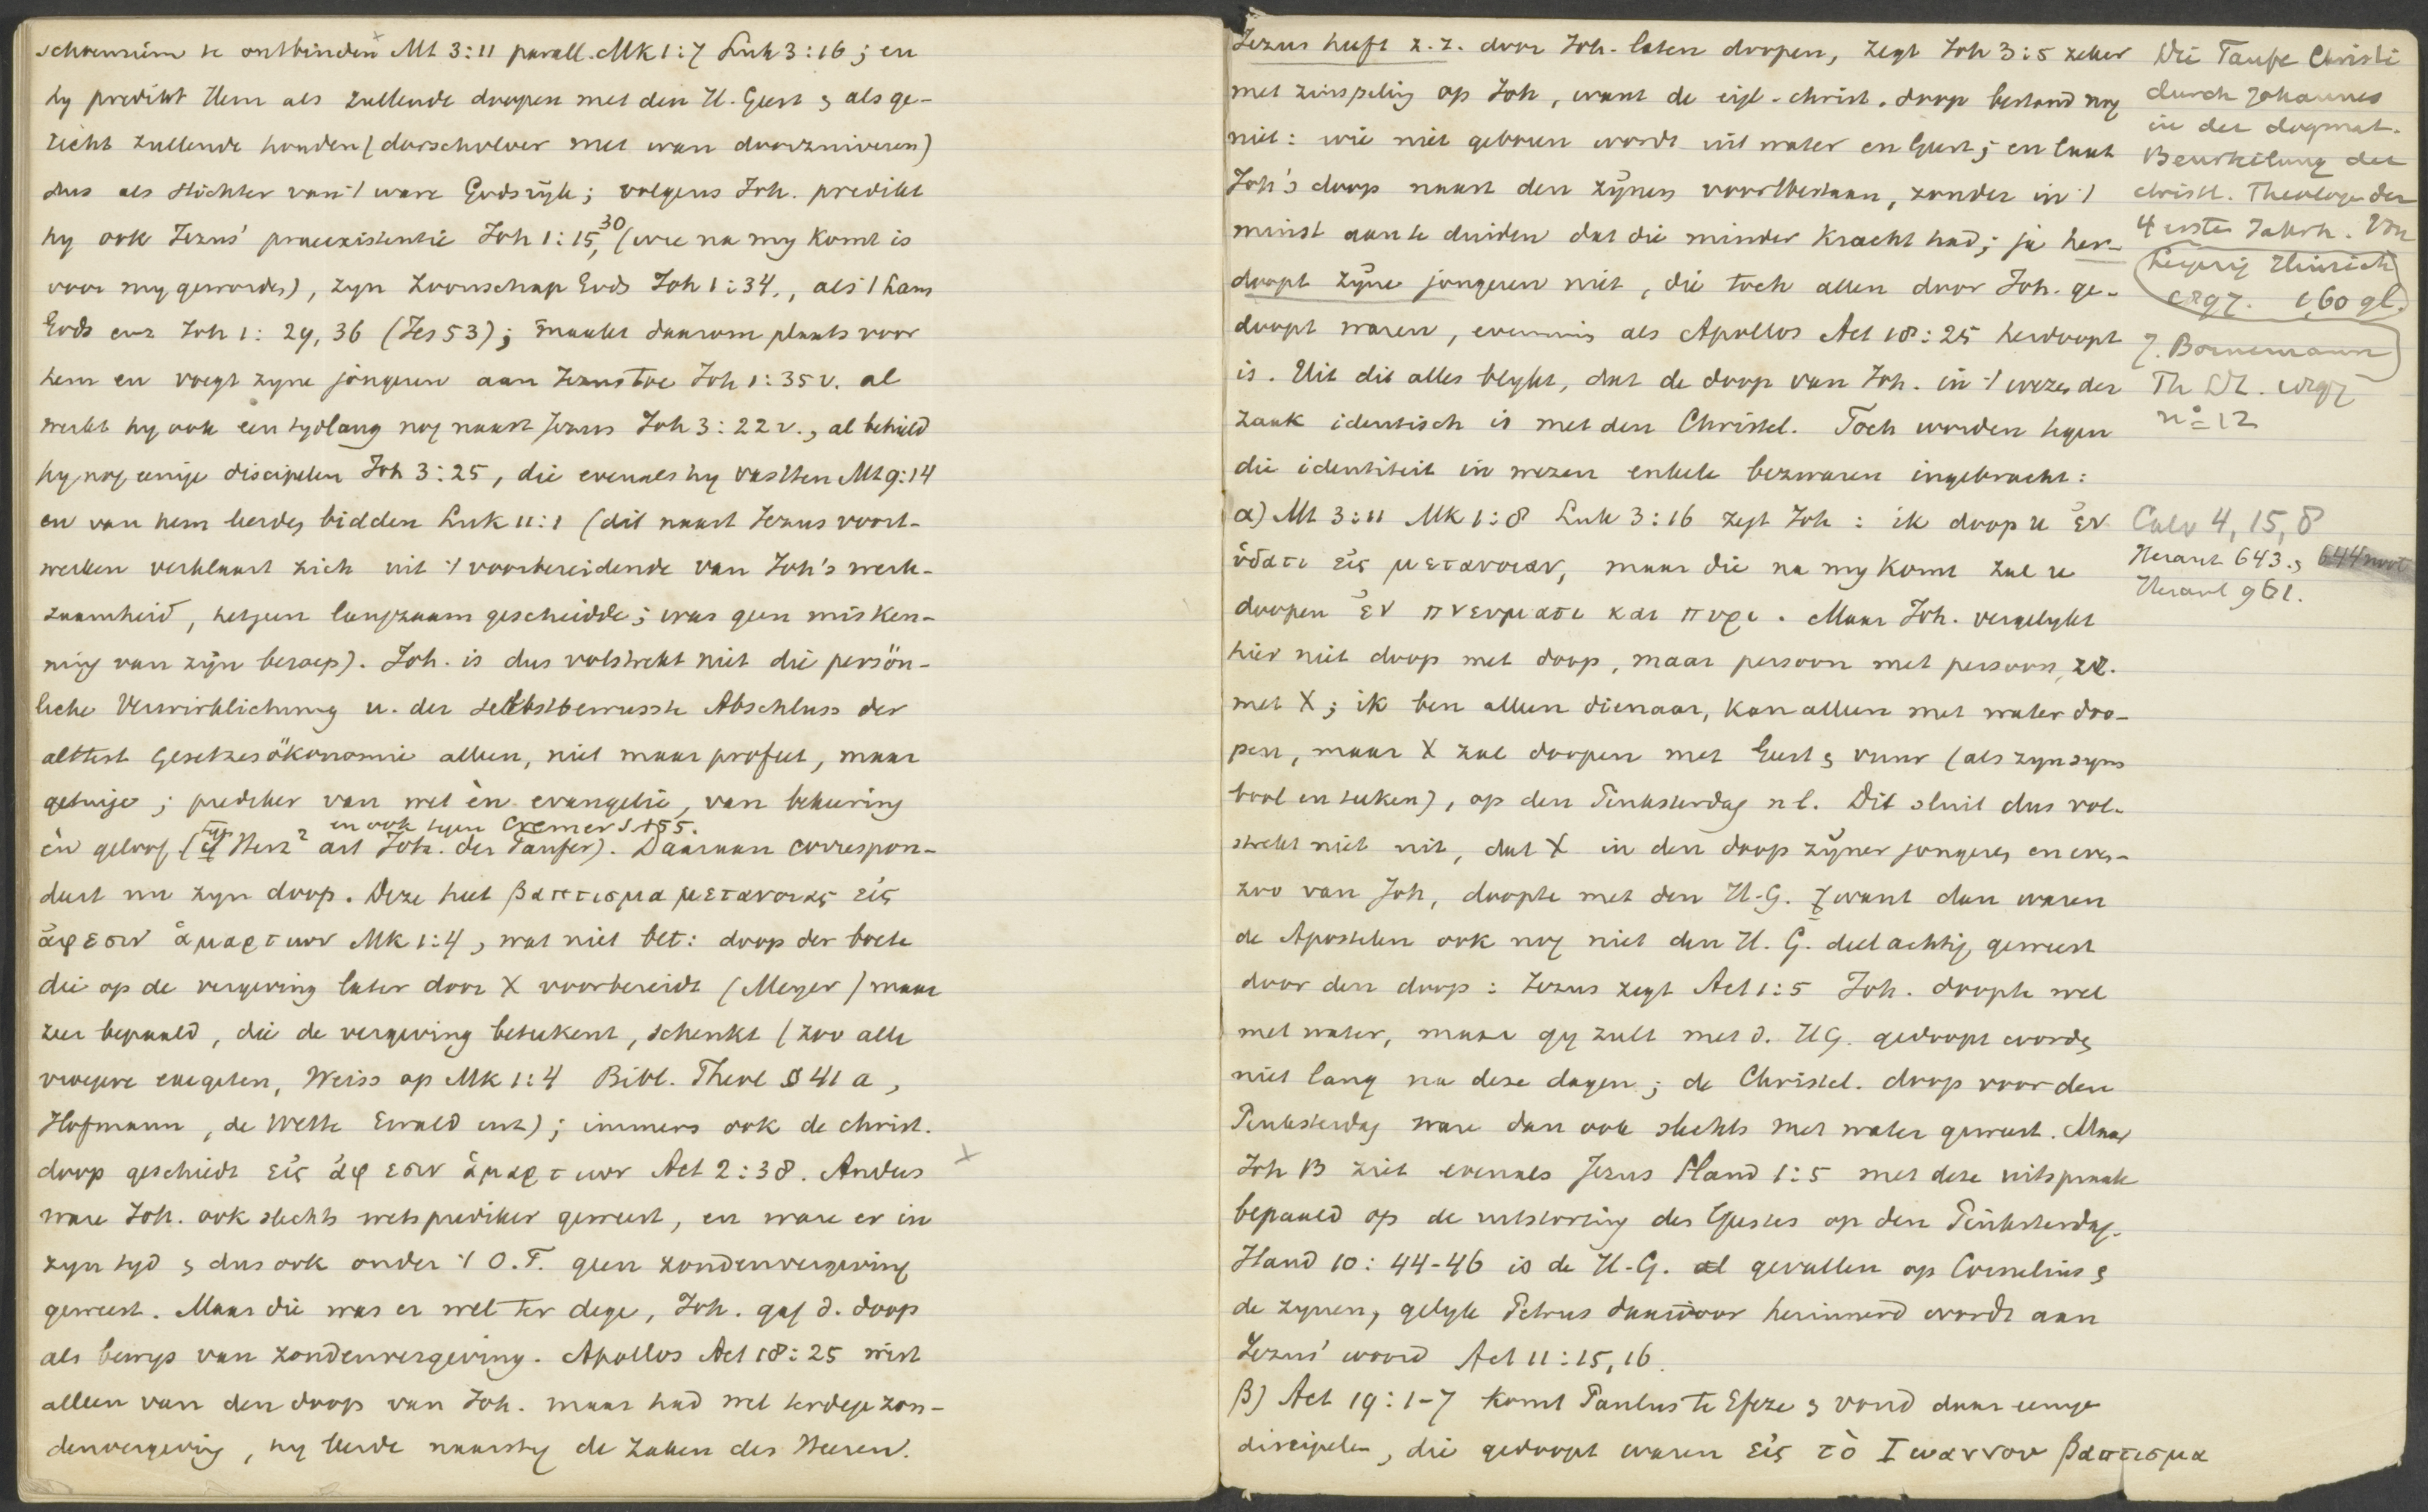 schoenriem te ontbinden Mt 3:11 parall. Mk 1:7 Luk 3:16; en
hy predikt Hem als zullende doopen met den H. Geest & als ge-
richt zullende houden (dorschvloer met wan doorzuiveren)
dus als stichter van 't ware Godsryk; volgens Joh. predikt
hy ook Jezus' praeexistentie Joh 1:15, 30 (wie na my komt is
voor my geworden), zyn Zoonschap Gods Joh 1:34., als 't Lam
Gods enz Joh 1: 29, 36 (Jes 53); maakt daarom plaats voor
hem en voegt zyne jongeren aan Jezus toe Joh 1:35 v. al
werkt hy ook een tydlang nog naast Jezus Joh 3:22 v., al behield
hy nog eenige discipelen Joh 3:25, die evenals hy vastten Mt 9:14
en van hem leerden bidden Luk 11:1 (dit naast Jezus voort-
werken verklaart zich uit 't voorbereidende van Joh's werk-
zaamheid, hetgeen langzaam geschiedde; was geen misken-
ning van zyn beroep). Joh. is dus volstrekt niet die persön-
liche Verwirklichung u. der selbstbewusste Abschluss der
alttest Gesetzesökonomie alleen, niet maar profeet, maar
getuige; prediker van wet èn evangelie, van bekeering
en ook tegen Cremer S 155.
èn geloof (cf Herz² art Joh. der Taufer). Daaraan correspon-
deert nu zyn doop. Deze heet βαπτισμα μετανοιας εἰς
ἀφεσιν ἁμαρτιων Mk 1:4, wat niet bet: doop der boete
die op de vergeving later door X voorbereidt (Meyer) maar
zeer bepaald, die de vergeving beteekent, schenkt (zoo alle
vroegere exegeten, Weiss op Mk 1:4 Bibl. Theol § 41 a,
Hofmann, de Wette Ewald enz); immers ook de christ.
doop geschiedt εἰς ἀφεσιν ἁμαρτιων Act 2:38. Anders x
ware Joh. ook slechts wetsprediker geweest, en ware er in
zyn tyd & dus ook onder 't O.T. geen zondenvergeving
geweest. Maar die was er wel ter dege, Joh. gaf d. doop
als bewys van zondenvergeving. Apollos Act 18:25 wist
alleen van den doop van Joh. maar had wel terdege zon-
denvergeving, hy leerde naarstig de zaken des Heeren.
Jezus heeft z. z. door Joh. laten doopen, zegt Joh 3:5 zeker
met zinspeling op Joh, want de eigl. christ. doop bestond nog
niet: wie niet geboren wordt uit water en Geest; en laat
Joh's doop naast den zynen voortbestaan, zonder in 't
minst aan te duiden dat die minder kracht had; ja her-
doopt zyne jongeren niet, die toch allen door Joh. ge-
doopt waren, evenmin als Apollos Act 18:25 herdoopt
is. Uit dit alles blykt, dat de doop van Joh. in 't wezen der
zaak identisch is met den Christel. Toch worden tegen
die identiteit in wezen enkele bezwaren ingebracht:
α) Mt 3:11 Mk 1:8 Luk 3:16 zegt Joh: ik doop u ἐν
ὑδατι εἰς μετανοιαν, maar die na my komt zal u
doopen ἐν πνευματι και πυρι. Maar Joh. vergelykt
hier niet doop met doop, maar persoon met persoon, zich
met X; ik ben alleen dienaar, kan alleen met water doo-
pen, maar X zal doopen met Geest & vuur (als zyn sym
bool en teeken), op den Pinksterdag nl. Dit sluit dus vol-
strekt niet uit, dat X in den doop zyner jongeren en even-
zoo van Joh, doopte met den H.G. want dan waren
de Apostelen ook nog niet den H. G. deelachtig geweest
door den doop: Jezus zegt Act 1:5 Joh. doopte wel
met water, maar gy zult met d. HG. gedoopt worden
niet lang na deze dagen; de Christel. doop voor den
Pinksterdag ware dan ook slechts met water geweest. Maar
Joh B ziet evenals Jezus Hand 1:5 met deze uitspraak
bepaald op de uitstorting des Geestes op den Pinksterdag.
Hand 10: 44-46 is de H.G. al gevallen op Cornelius &
de zynen, gelyk Petrus daardoor herinnerd wordt aan
Jezus' woord Act 11:15, 16.
β) Act 19:1-7 komt Paulus te Efeze & vond daar eenige
discipelen, die gedoopt waren εἰς τὸ Ιωαννου βαπτισμα
Die Taufe Christi
durch Johannes
in der dogmat.
Beurteilung der
christl. Theologen der
4 ersten Jahrh. Von
J. Bornemann
Leipzig Hinrichs
1897. 1,60 gl.
Th LZ. 1897
no 12
Calv 4, 15, 8
Heraut 643., 644
Heraut 961.